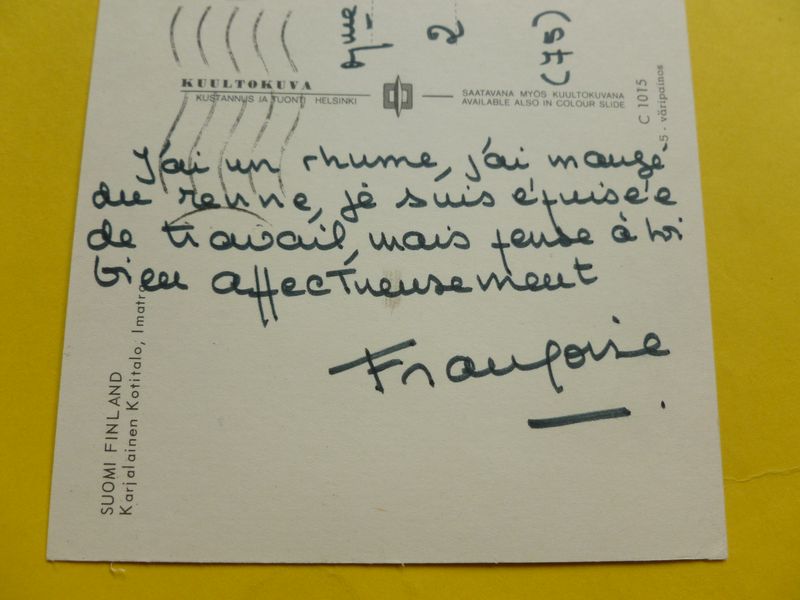 Mme
2
(75)
KUULTOKUVA
KUSTANNUS JA TUONTI HELSINKI
SAATAVANA MYÖS KUULTOKUVANA
AVAILABLE ALSO IN COLOUR SLIDE
C 1015
5 - väripainos
J'ai un rhume, j'ai mangé
du renne, je suis épuisée
de travail, mais pense à toi
bien affectueusement
Françoise
SUOMI FINLAND
Karjalainen Kotitalo, Imatra